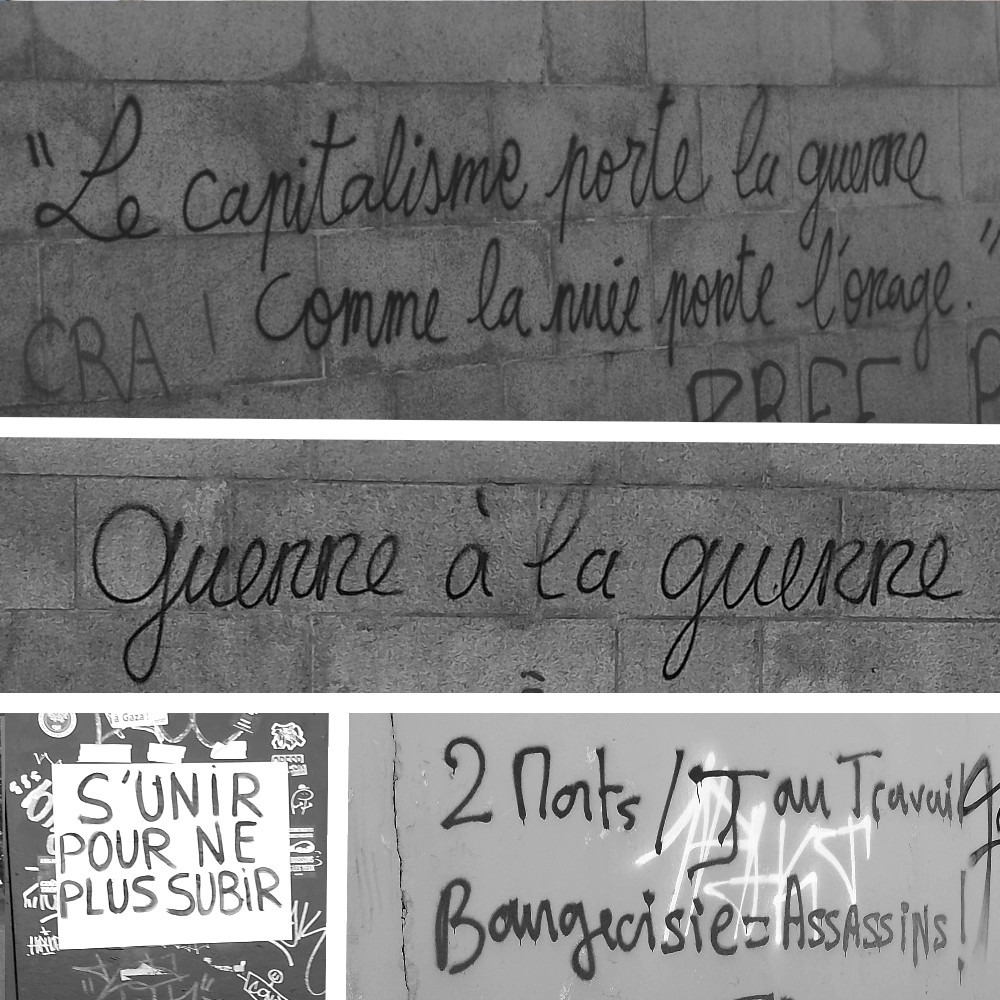 "Le capitalisme porte la guerre
comme la nuée porte l'orage."
CRA
FREE
Guerre à la guerre
à Gaza!
S'UNIR
POUR NE
PLUS SUBIR
2 Morts / J au Travail
Bourgeoisie = ASSASSINS!